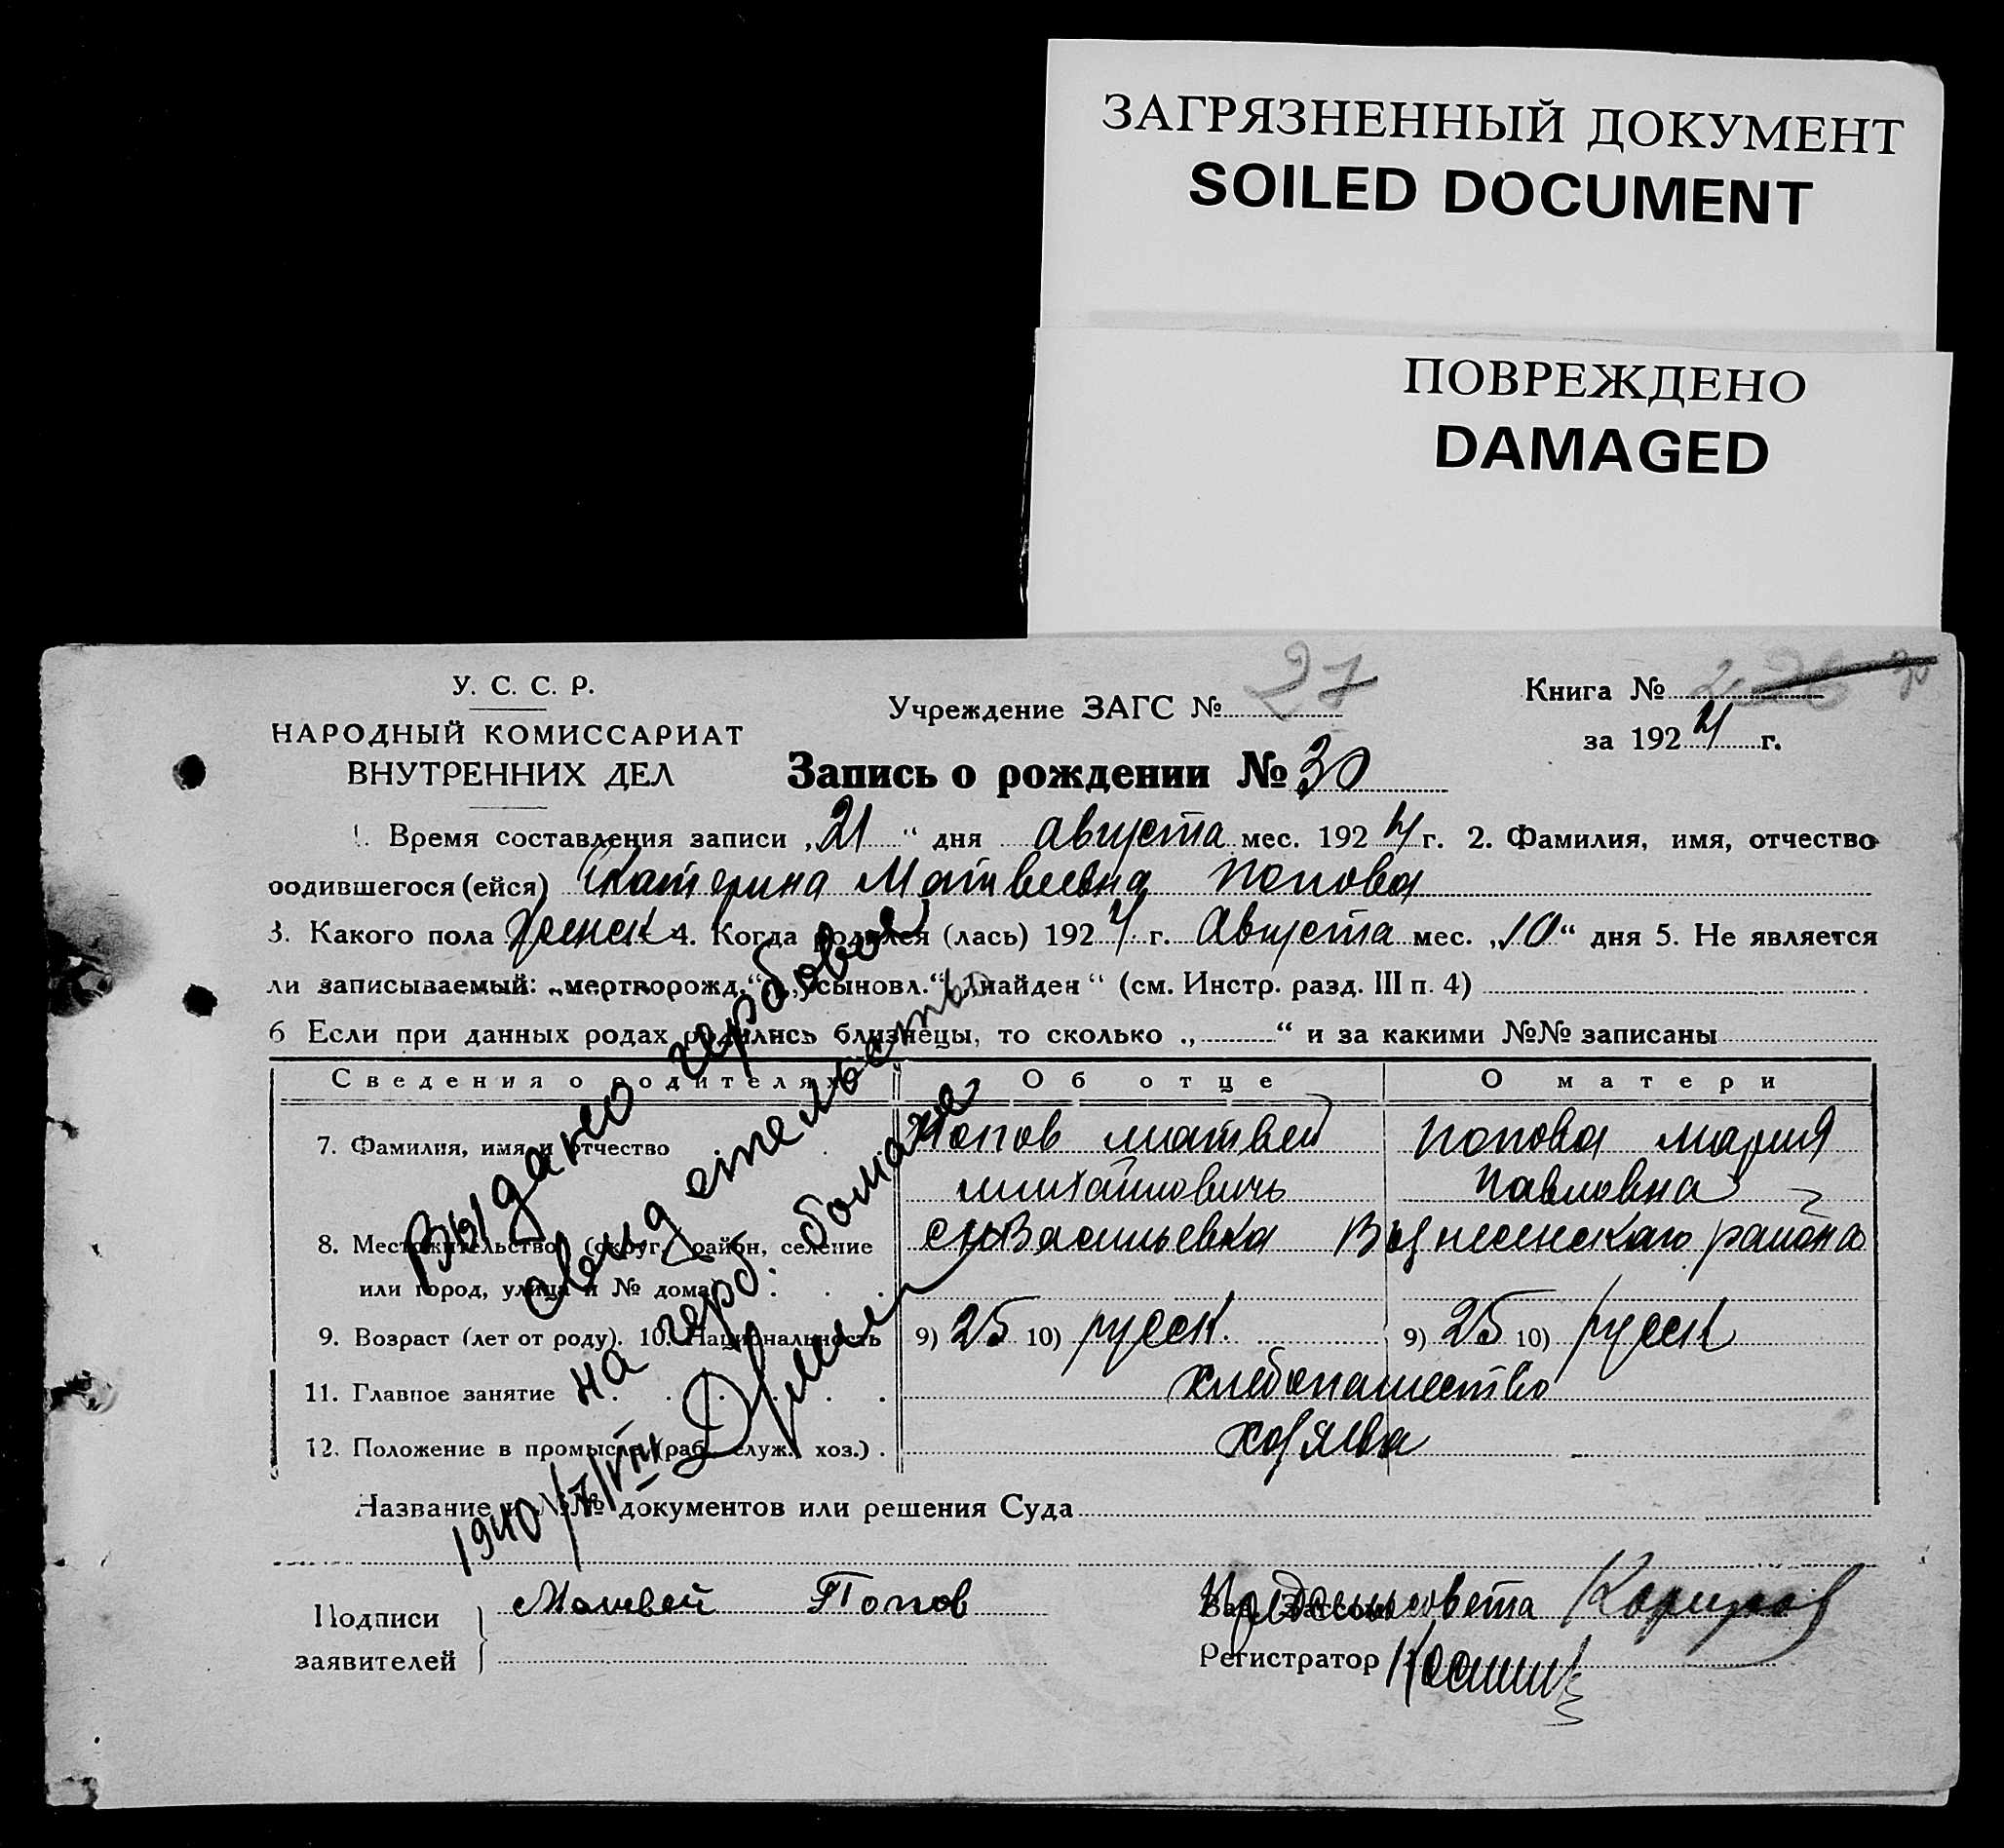 ЗАГРЯЗНЕННЫЙ ДОКУМЕНТ
SOILED DOCUMENT
ПОВРЕЖДЕНО
DAMAGED
У. С. С. Р.
НАРОДНЫЙ КОМИССАРИАТ
ВНУТРЕННИХ ДЕЛ
Учреждение ЗАГС № 27
Книга №
за 1924 г.
Запись о рождении № 30
1. Время составления записи „21“ дня августа мес. 1924 г. 2. Фамилия, имя, отчество
родившегося (ейся) Екатерина Матвеевна Попова
3. Какого пола женск 4. Когда родился (лась) 1924 г. Августа мес. „10“ дня 5. Не является
ли записываемый: „мертворожд.“ „усыновл.“ „найден“ (см. Инстр. разд. III п. 4)
6 Если при данных родах родились близнецы, то сколько „ “ и за какими №№ записаны
Сведения о родителях Об отце О матери
7. Фамилия, имя и отчество Попов Матвей Попова Мария
Михайлович Павловна
8. Местожительство (округ, район, селение с. Васильевка Вознесенскаго района
или город, улица и № дома)
9. Возраст (лет от роду). 10. Национальность 9) 25 10) русск. 9) 25 10) русск
11. Главное занятие хлебопашество
12. Положение в промысле (раб. служ. хоз.) хозяева
Название и №№ документов или решения Суда
Выдано гербовое
свидетельство
на герб. бомаге
1940/7/VIII
Подписи
заявителей
Матвей Попов
Пред сельсовета
Регистратор